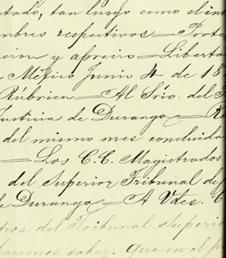 tado, tan luego como
nbres respectivos — Prote
cion y aprecio — Liberta
Méjico Junio 4 de 18
Rúbrica — Al Srio. del
usticia de Durango —
del mismo mes concluida
— Los C.C. Magistrados
del Superior Tribunal de
e Durango — A Vdes. C
tros del Tribunal Superio
hacemos saber: Que en el